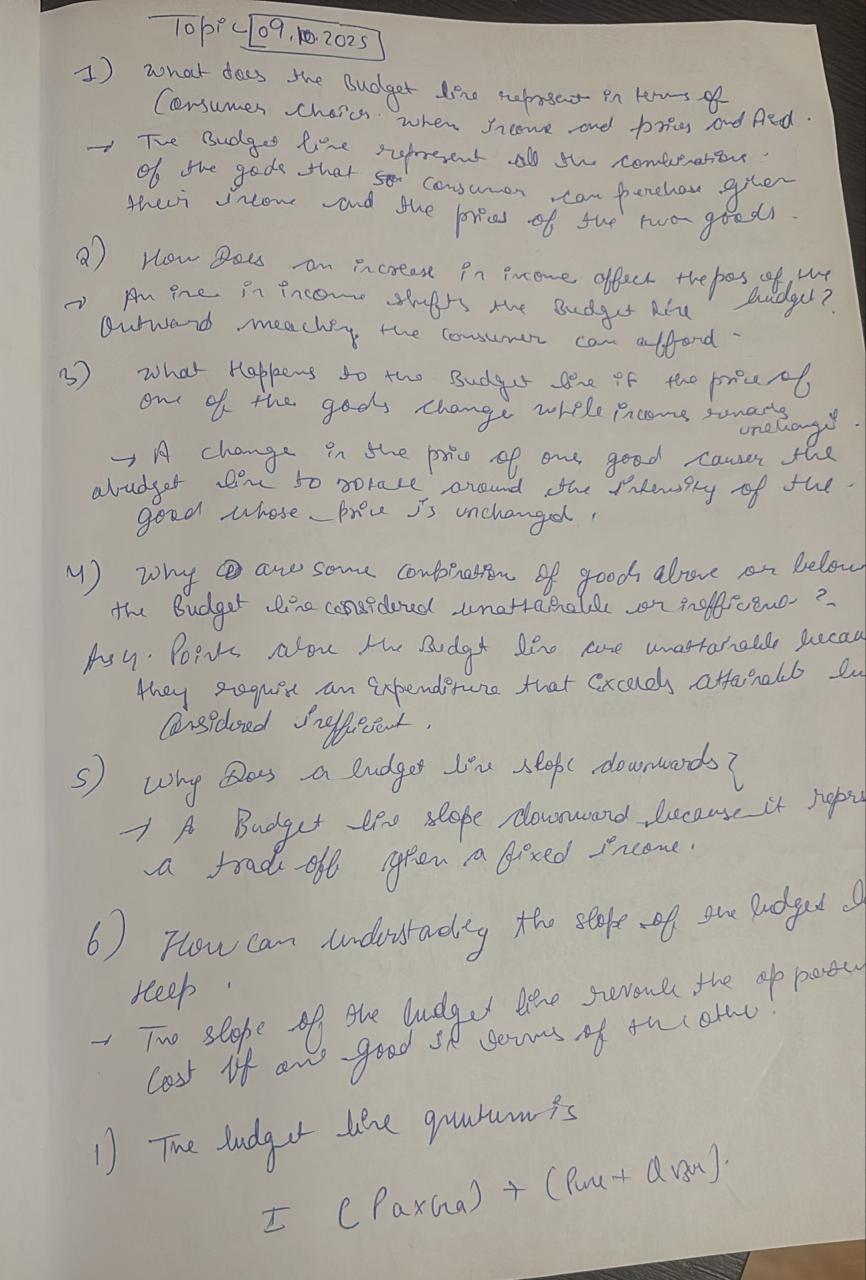 Topic 09.10.2025
1) What does the Budget line represent in terms of
Consumer choices when income and prices and fixed.
→ The Budget line represent all the combination
of the gods that consumer can perchase given
their income and the prices of the two goods.
2) How Does an increase in income affect the pos of the
budget?
→ An inc in income shifts the Budget line
Outward meaching the consumer can afford -
3) What Happens to the Budget line if the price of
one of the gods change while income remains
unchanged.
→ A change in the price of one good causes the
abudget line to rotate around the intensity of the
good whose price is unchanged.
4) Why are some combination of goods above or below
the Budget line considered unattainable or inefficient ?
Ans 4. Points alove the Budgt line are unattainable becau
they require an Expenditure that Exceeds attainable
Considered inefficient.
5) Why Does a budget line slope downwards?
→ A Budget line slope downward because it repres
a trade off given a fixed income.
6) How can understanding the slope of the budget
Help.
→ The slope of the budget line the
Cost of one good in terms of the other.
1) The budget line is
I (